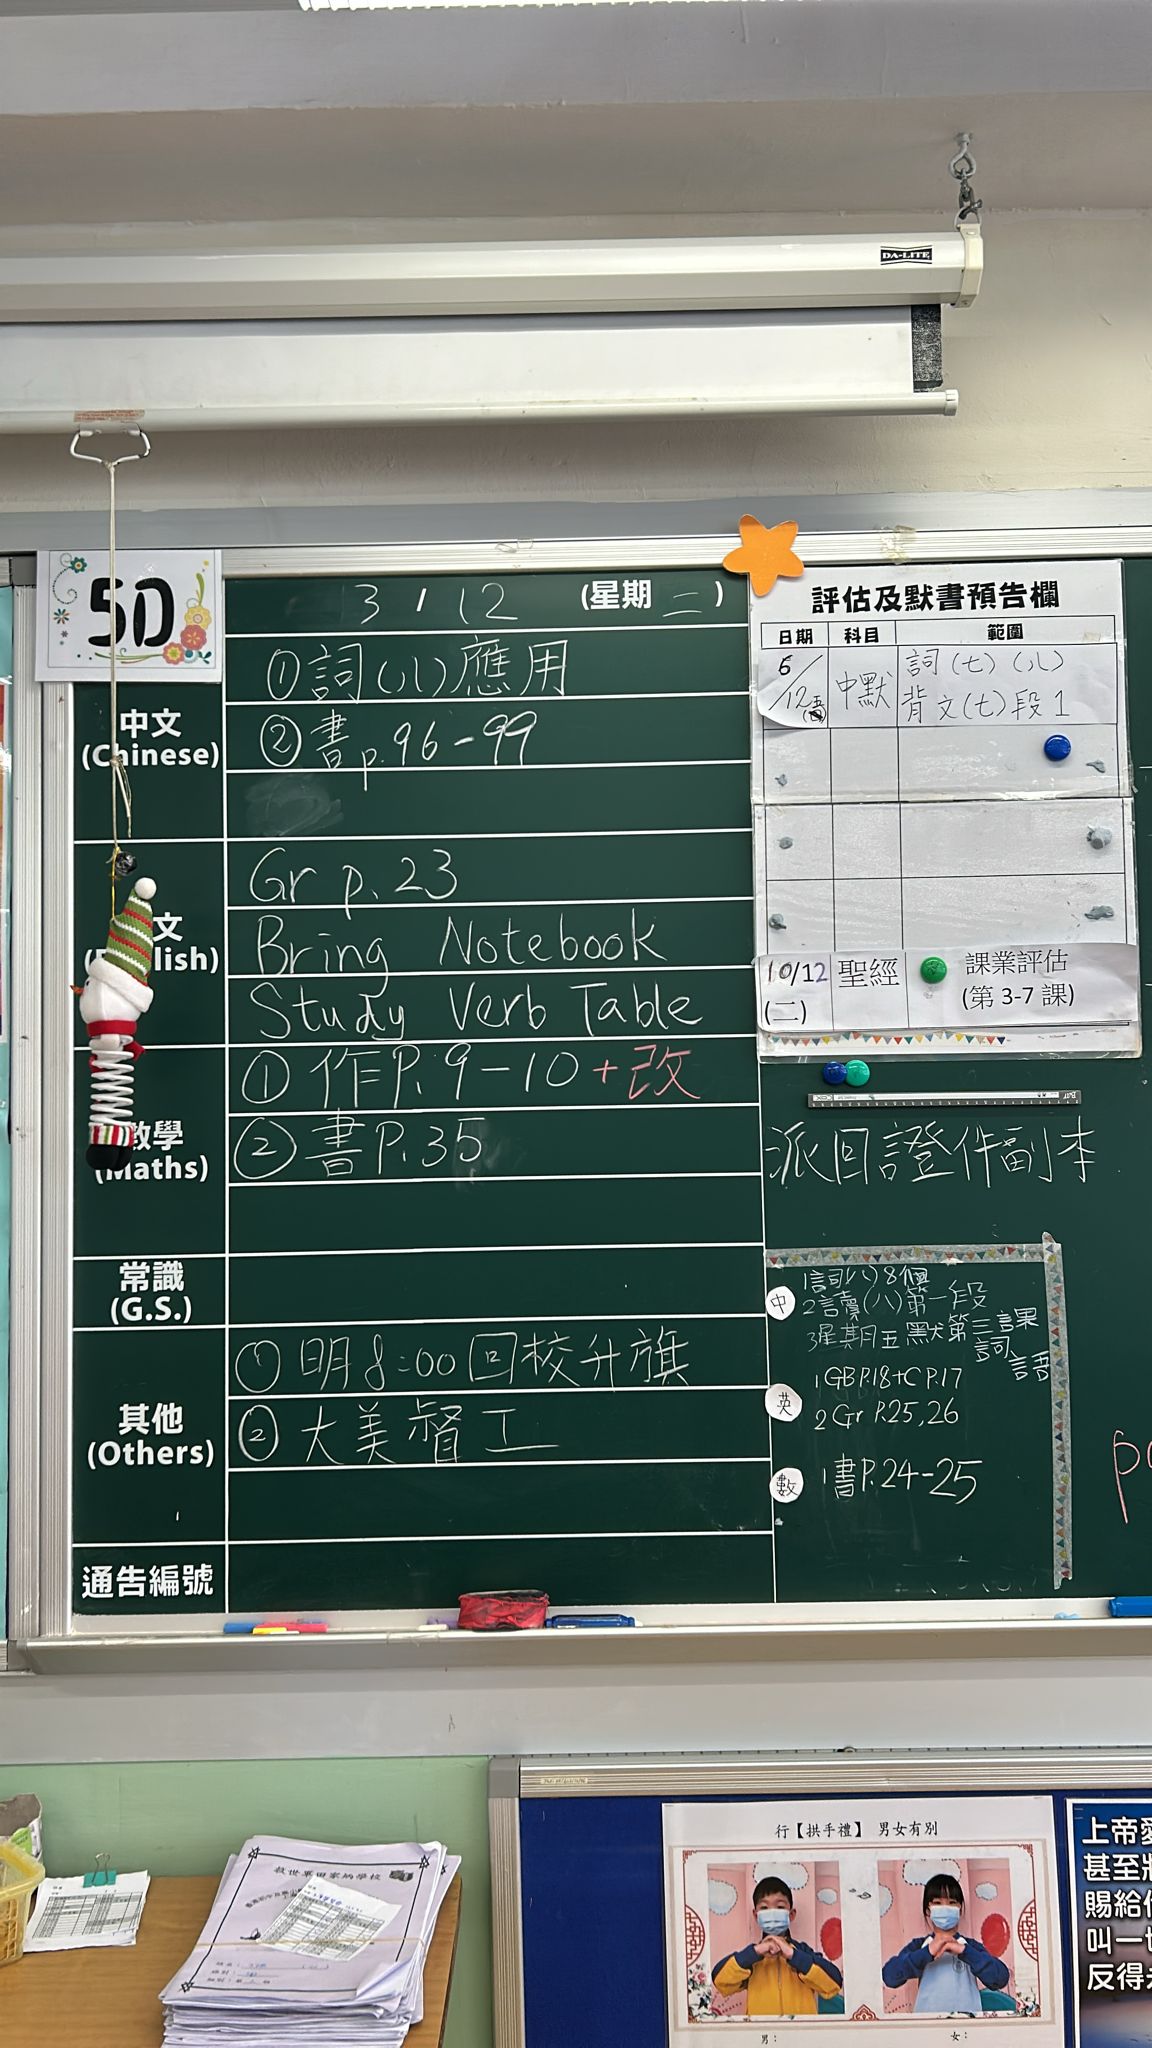 DA-LITE
5D
3 / 12 (星期 二)
中文
(Chinese)
①詞(八)應用
②書p.96-99
文
lish)
Gr p.23
Bring Notebook
Study Verb Table
數學
(Maths)
①作P.9-10+改
②書P.35
常識
(G.S.)
其他
(Others)
①明8:00回校升旗
②大美督工
通告編號
評估及默書預告欄
日期 科目 範圍
6/12 中默 詞(七)(八)
背文(七)段1
10/12 聖經 課業評估
(二) (第 3-7 課)
派回證件副本
中
1詞(八)8個
2讀(八)第一段
3星期五默第三課
詞語
英
1GBP.18+CP.17
2Gr P.25,26
數
1書P.24-25
救世軍田家炳學校
行【拱手禮】 男女有別
男：
女：
上帝愛
甚至將
賜給他
叫一切
反得永